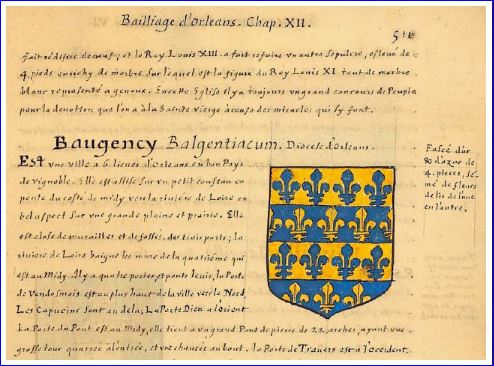 Bailliage d'Orleans. Chap. XII.
511
fait réédifier de neuf; et le Roy Louis XIII. a fait refaire un autre sepulcre, eslevé de
4. pieds enrichy de marbre sur lequel est la figure du Roy Louis XI. tout de marbre
blanc representé a genoux. En cette Eglise il y a toujours un grand concours de Peuple
pour la devotion que l'on a à la Sainte vierge à cause des miracles qui sy font.
Baugency Balgentiacum. Diocese d'Orleans.
EST une ville a 6. lieues d'Orleans en bon Pays
de vignoble. Elle est assise sur un petit cousteau en
pente du costé de midy vers la riviere de Loire en
bel aspect sur une grande plaine et prairie. Elle
est close de murailles et de fossés, des trois parts; la
riviere de Loire baigne les murs de la quatriéme qui
est au Midy. Il y a quatre portes, et ponts levis, la Porte
de Vendosmois est au plus haut de la ville vers le Nord,
Les Capucins sont au dela; La Porte Dieu a l'orient
La Porte du Pont est au Midy, elle tient a un grand Pont de pierre de 22 arches, ayant une
grosse tour quarrée à l'entrée, et une chaucée au bout. la Porte de Travers est a l'occident.
Fascé d'or
& d'azur de
4. pieces, se-
mé de fleurs
de lis de l'une
en l'autre.